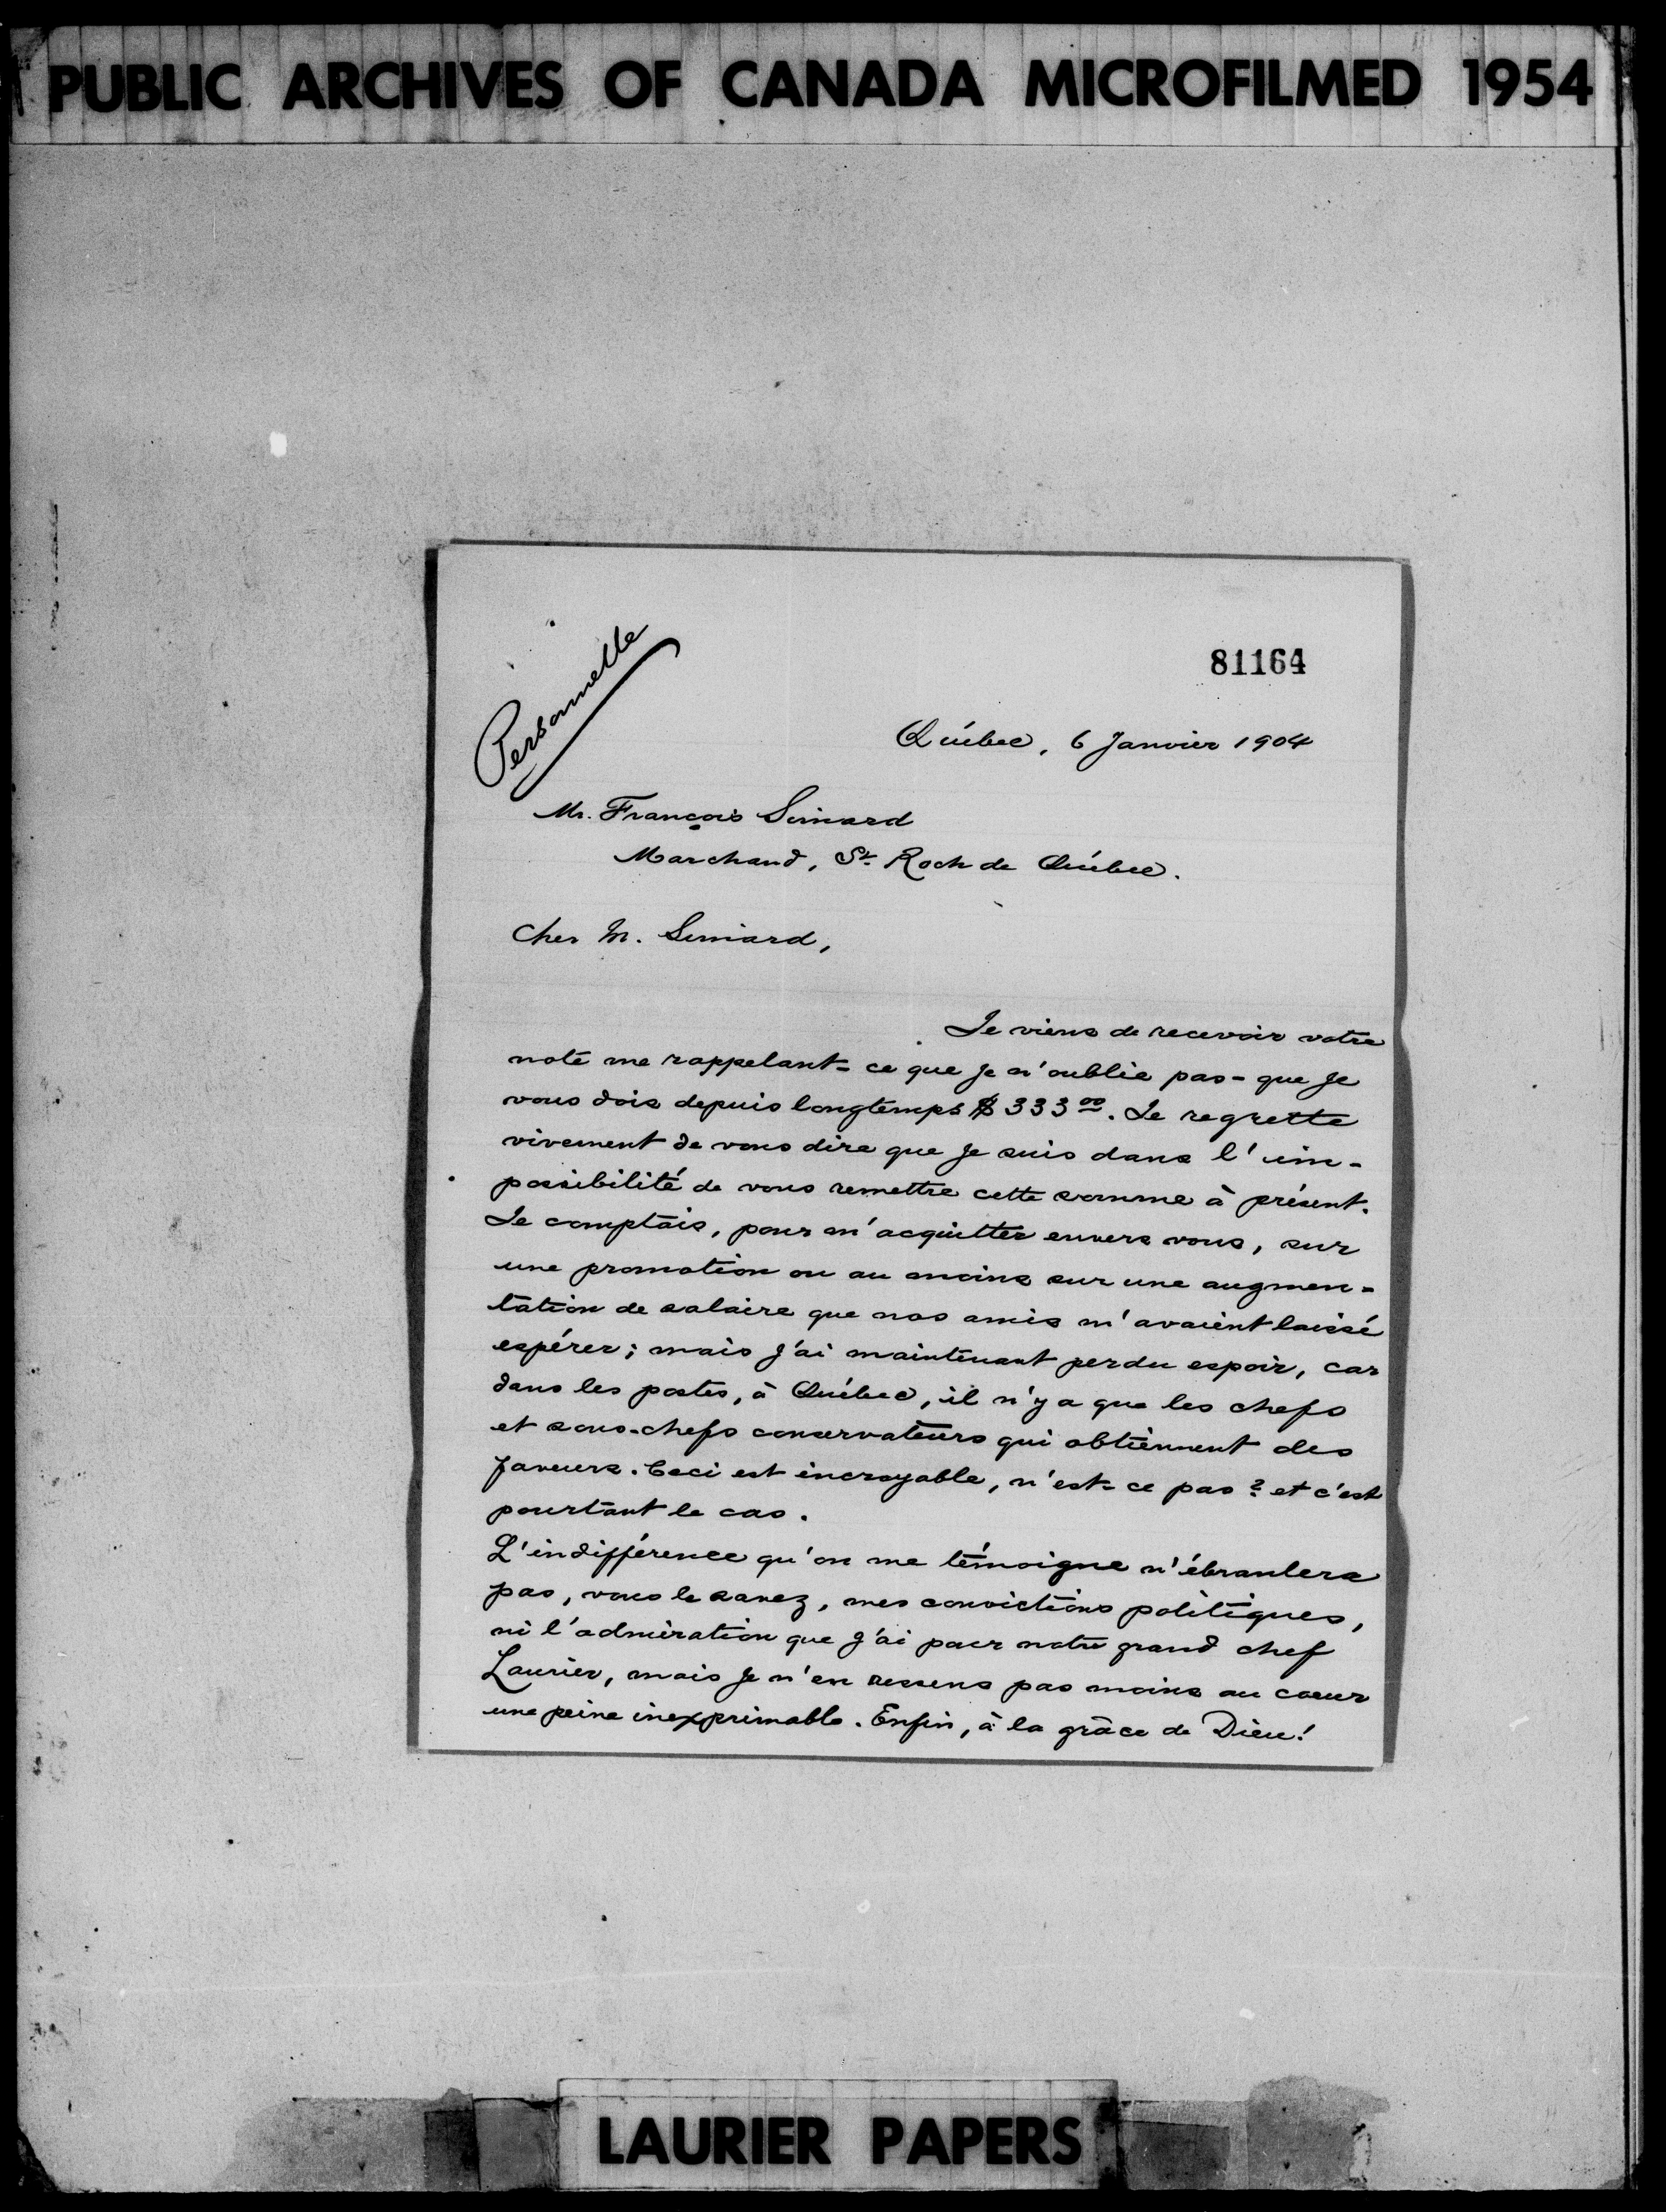 PUBLIC ARCHIVES OF CANADA MICROFILMED 1954
Personnelle
81164
Québec, 6 Janvier 1904
Mr. François Simard
Marchand, St. Roch de Québec.
Cher M. Simard,
Je viens de recevoir votre
note me rappelant - ce que je n'oublie pas - que je
vous dois depuis longtemps $333 00. Je regrette
vivement de vous dire que je suis dans l'im-
possibilité de vous remettre cette somme à présent.
Je comptais, pour m'acquitter envers vous, sur
une promotion ou au moins sur une augmen-
tation de salaire que nos amis m'avaient laissé
espérer; mais j'ai maintenant perdu espoir, car
dans les postes, à Québec, il n'y a que les chefs
et sous-chefs conservateurs qui obtiennent des
faveurs. Ceci est incroyable, n'est-ce pas? et c'est
pourtant le cas.
L'indifférence qu'on me témoigne n'ébranlera
pas, vous le savez, mes convictions politiques,
ni l'admiration que j'ai pour notre grand chef
Laurier, mais je n'en ressens pas moins au coeur
une peine inexprimable. Enfin, à la grâce de Dieu!
LAURIER PAPERS